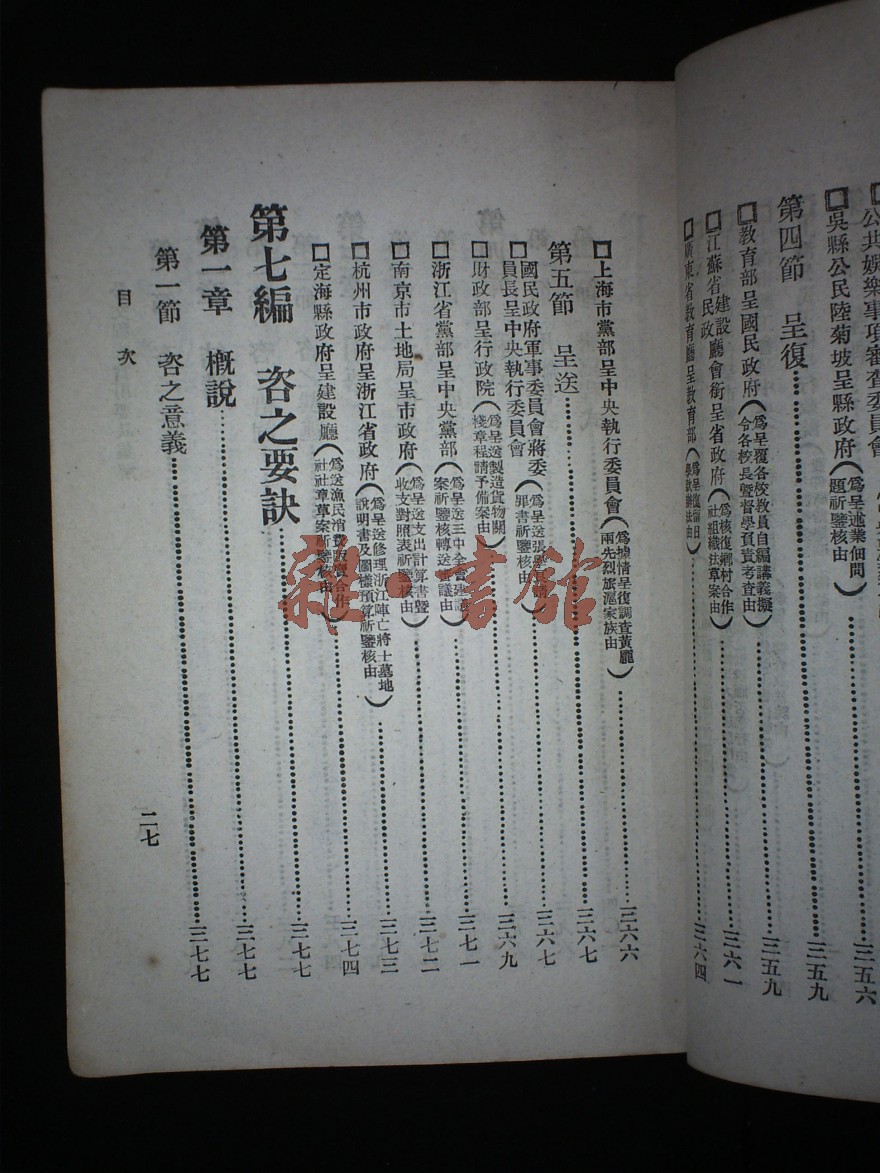 公共娛樂事項審查委員會
吳縣公民陸菊坡呈縣政府(爲呈述業佃間題祈鑒核由)……三五六
第四節 呈復……三五九
教育部呈國民政府(爲呈覆各校教員自編講義擬令各校長暨督學員責考查由)……三五九
江蘇省建設民政廳會銜呈省政府(爲核復鄉村合作社組織法草案由)……三六一
廣東省教育廳呈教育部……三六四
上海市黨部呈中央執行委員會(爲據情呈復調查黃龐兩先烈旅滬家族由)……三六六
第五節 呈送……三六七
國民政府軍事委員會蔣委員長呈中央執行委員會(爲呈送張學良請罪書祈鑒核由)……三六七
財政部呈行政院(爲呈送製造貨物關棧章程請予備案由)……三六九
浙江省黨部呈中央黨部(爲呈送三中全會建議案祈鑒核轉送審議由)……三七一
南京市土地局呈市政府(爲呈送支出計算書暨收支對照表祈鑒核由)……三七二
杭州市政府呈浙江省政府(爲呈送修理浙江陣亡將士墓地說明書及圖樣預算祈鑒核由)……三七三
定海縣政府呈建設廳(爲送漁民消費販賣合作社社章草案祈鑒核由)……三七四
第七編 咨之要訣……三七七
第一章 概說……三七七
第一節 咨之意義……三七七
目次
二七
雜一書舘